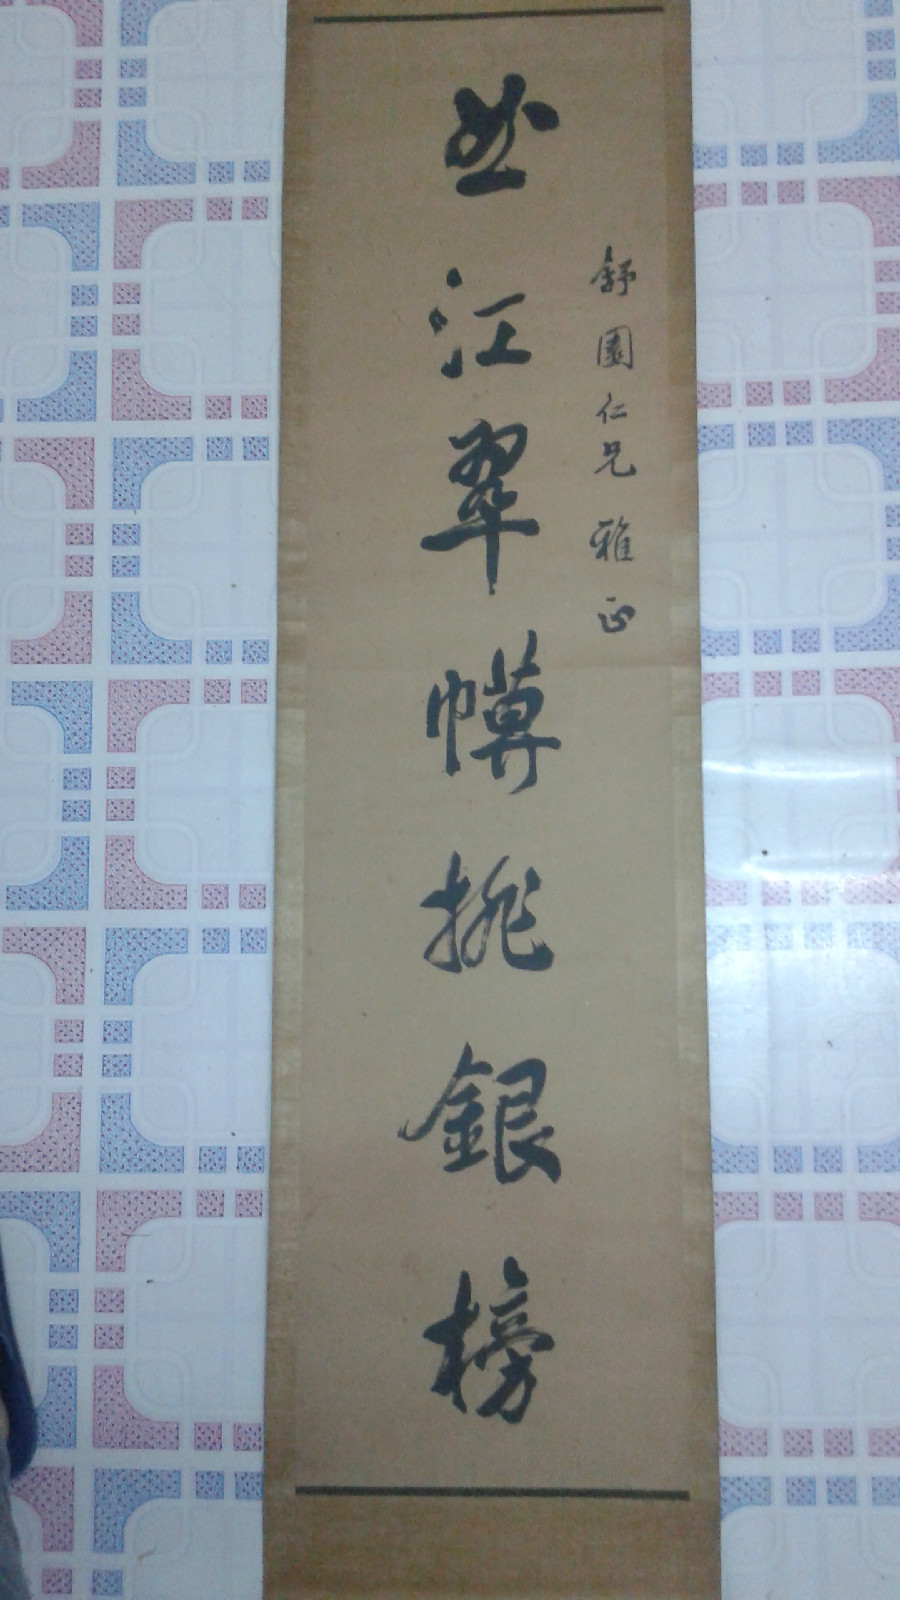 舒園仁兄雅正
並江翠幙排銀榜